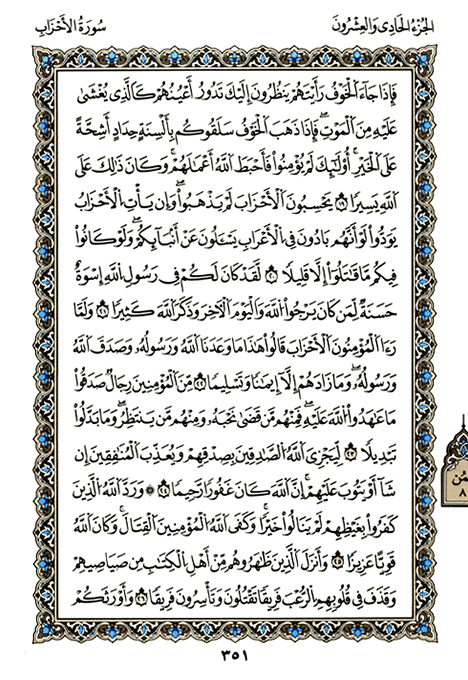 الجُزْءُ الحَادِى وَالعِشْرُونَ
سُورَةُ الأَحْزَابِ
فَإِذَا جَآءَ الْخَوْفُ رَأَيْتَهُمْ يَنظُرُونَ إِلَيْكَ تَدُورُ أَعْيُنُهُمْ كَالَّذِى يُغْشَىٰ
عَلَيْهِ مِنَ الْمَوْتِ فَإِذَا ذَهَبَ الْخَوْفُ سَلَقُوكُم بِأَلْسِنَةٍ حِدَادٍ أَشِحَّةً
عَلَى الْخَيْرِ أُوْلَٰٓئِكَ لَمْ يُؤْمِنُواْ فَأَحْبَطَ اللَّهُ أَعْمَٰلَهُمْ وَكَانَ ذَٰلِكَ عَلَى
اللَّهِ يَسِيرًا ١٩ يَحْسِبُونَ الْأَحْزَابَ لَمْ يَذْهَبُواْ وَإِن يَأْتِ الْأَحْزَابُ
يَوَدُّواْ لَوْ أَنَّهُم بَادُونَ فِى الْأَعْرَابِ يَسْـَٔلُونَ عَنْ أَنۢبَآئِكُمْ وَلَوْ كَانُواْ
فِيكُم مَّا قَٰتَلُوٓاْ إِلَّا قَلِيلًا ٢٠ لَّقَدْ كَانَ لَكُمْ فِى رَسُولِ اللَّهِ إِسْوَةٌ
حَسَنَةٌ لِّمَن كَانَ يَرْجُواْ اللَّهَ وَالْيَوْمَ الْأَخِرَ وَذَكَرَ اللَّهَ كَثِيرًا ٢١ وَلَمَّا
رَءَا الْمُؤْمِنُونَ الْأَحْزَابَ قَالُواْ هَٰذَا مَا وَعَدَنَا اللَّهُ وَرَسُولُهُ وَصَدَقَ اللَّهُ
وَرَسُولُهُ وَمَا زَادَهُمْ إِلَّآ إِيمَٰنًا وَتَسْلِيمًا ٢٢ مِّنَ الْمُؤْمِنِينَ رِجَالٌ صَدَقُواْ
مَا عَٰهَدُواْ اللَّهَ عَلَيْهِ فَمِنْهُم مَّن قَضَىٰ نَحْبَهُ وَمِنْهُم مَّن يَنتَظِرُ وَمَا بَدَّلُواْ
تَبْدِيلًا ٢٣ لِّيَجْزِىَ اللَّهُ الصَّٰدِقِينَ بِصِدْقِهِمْ وَيُعَذِّبَ الْمُنَٰفِقِينَ إِن
شَآءَ أَوْ يَتُوبَ عَلَيْهِمْ إِنَّ اللَّهَ كَانَ غَفُورًا رَّحِيمًا ٢٤ وَرَدَّ اللَّهُ الَّذِينَ
كَفَرُواْ بِغَيْظِهِمْ لَمْ يَنَالُواْ خَيْرًا وَكَفَى اللَّهُ الْمُؤْمِنِينَ الْقِتَالَ وَكَانَ اللَّهُ
قَوِيًّا عَزِيزًا ٢٥ وَأَنزَلَ الَّذِينَ ظَٰهَرُوهُم مِّنْ أَهْلِ الْكِتَٰبِ مِن صَيَاصِيهِمْ
وَقَذَفَ فِى قُلُوبِهِمُ الرُّعْبَ فَرِيقًا تَقْتُلُونَ وَتَأْسِرُونَ فَرِيقًا ٢٦ وَأَوْرَثَكُمْ
٣٥١